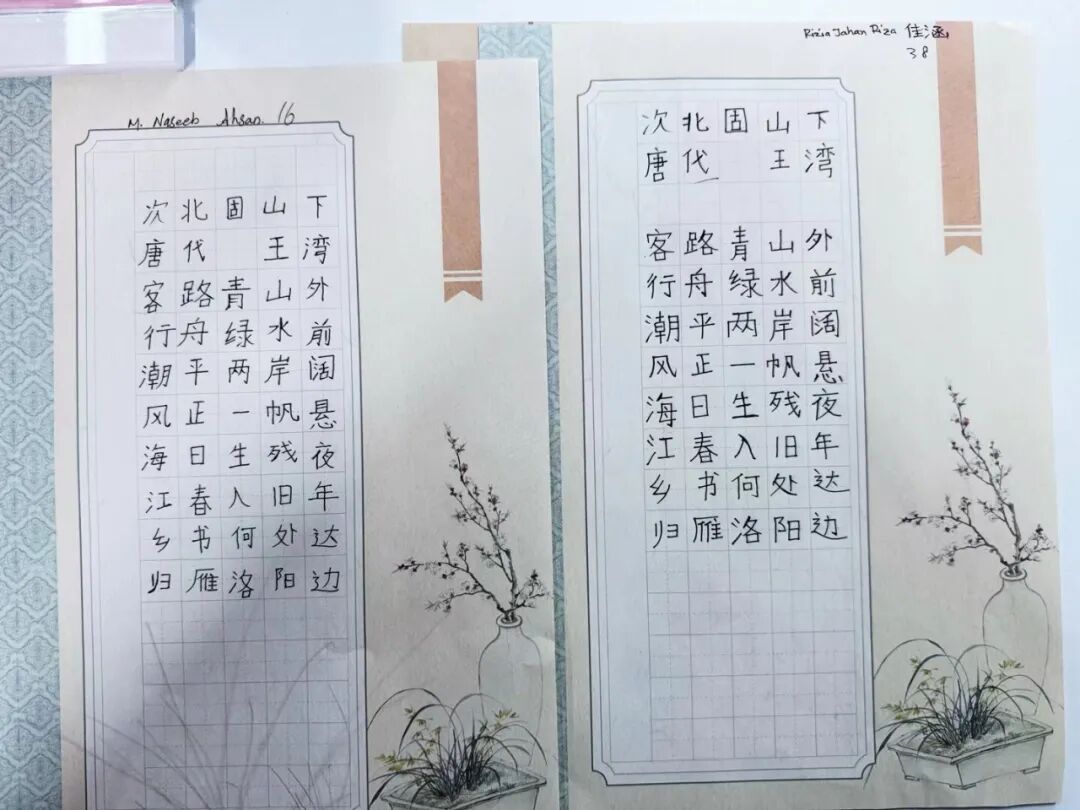 M. Naseeb Ahsan. 16
次北固山下
唐代 王湾
客路青山外
行舟绿水前
潮平两岸阔
风正一帆悬
海日生残夜
江春入旧年
乡书何处达
归雁洛阳边
Rizia Jahan Riza 佳涵
38
次北固山下
唐代 王湾
客路青山外
行舟绿水前
潮平两岸阔
风正一帆悬
海日生残夜
江春入旧年
乡书何处达
归雁洛阳边